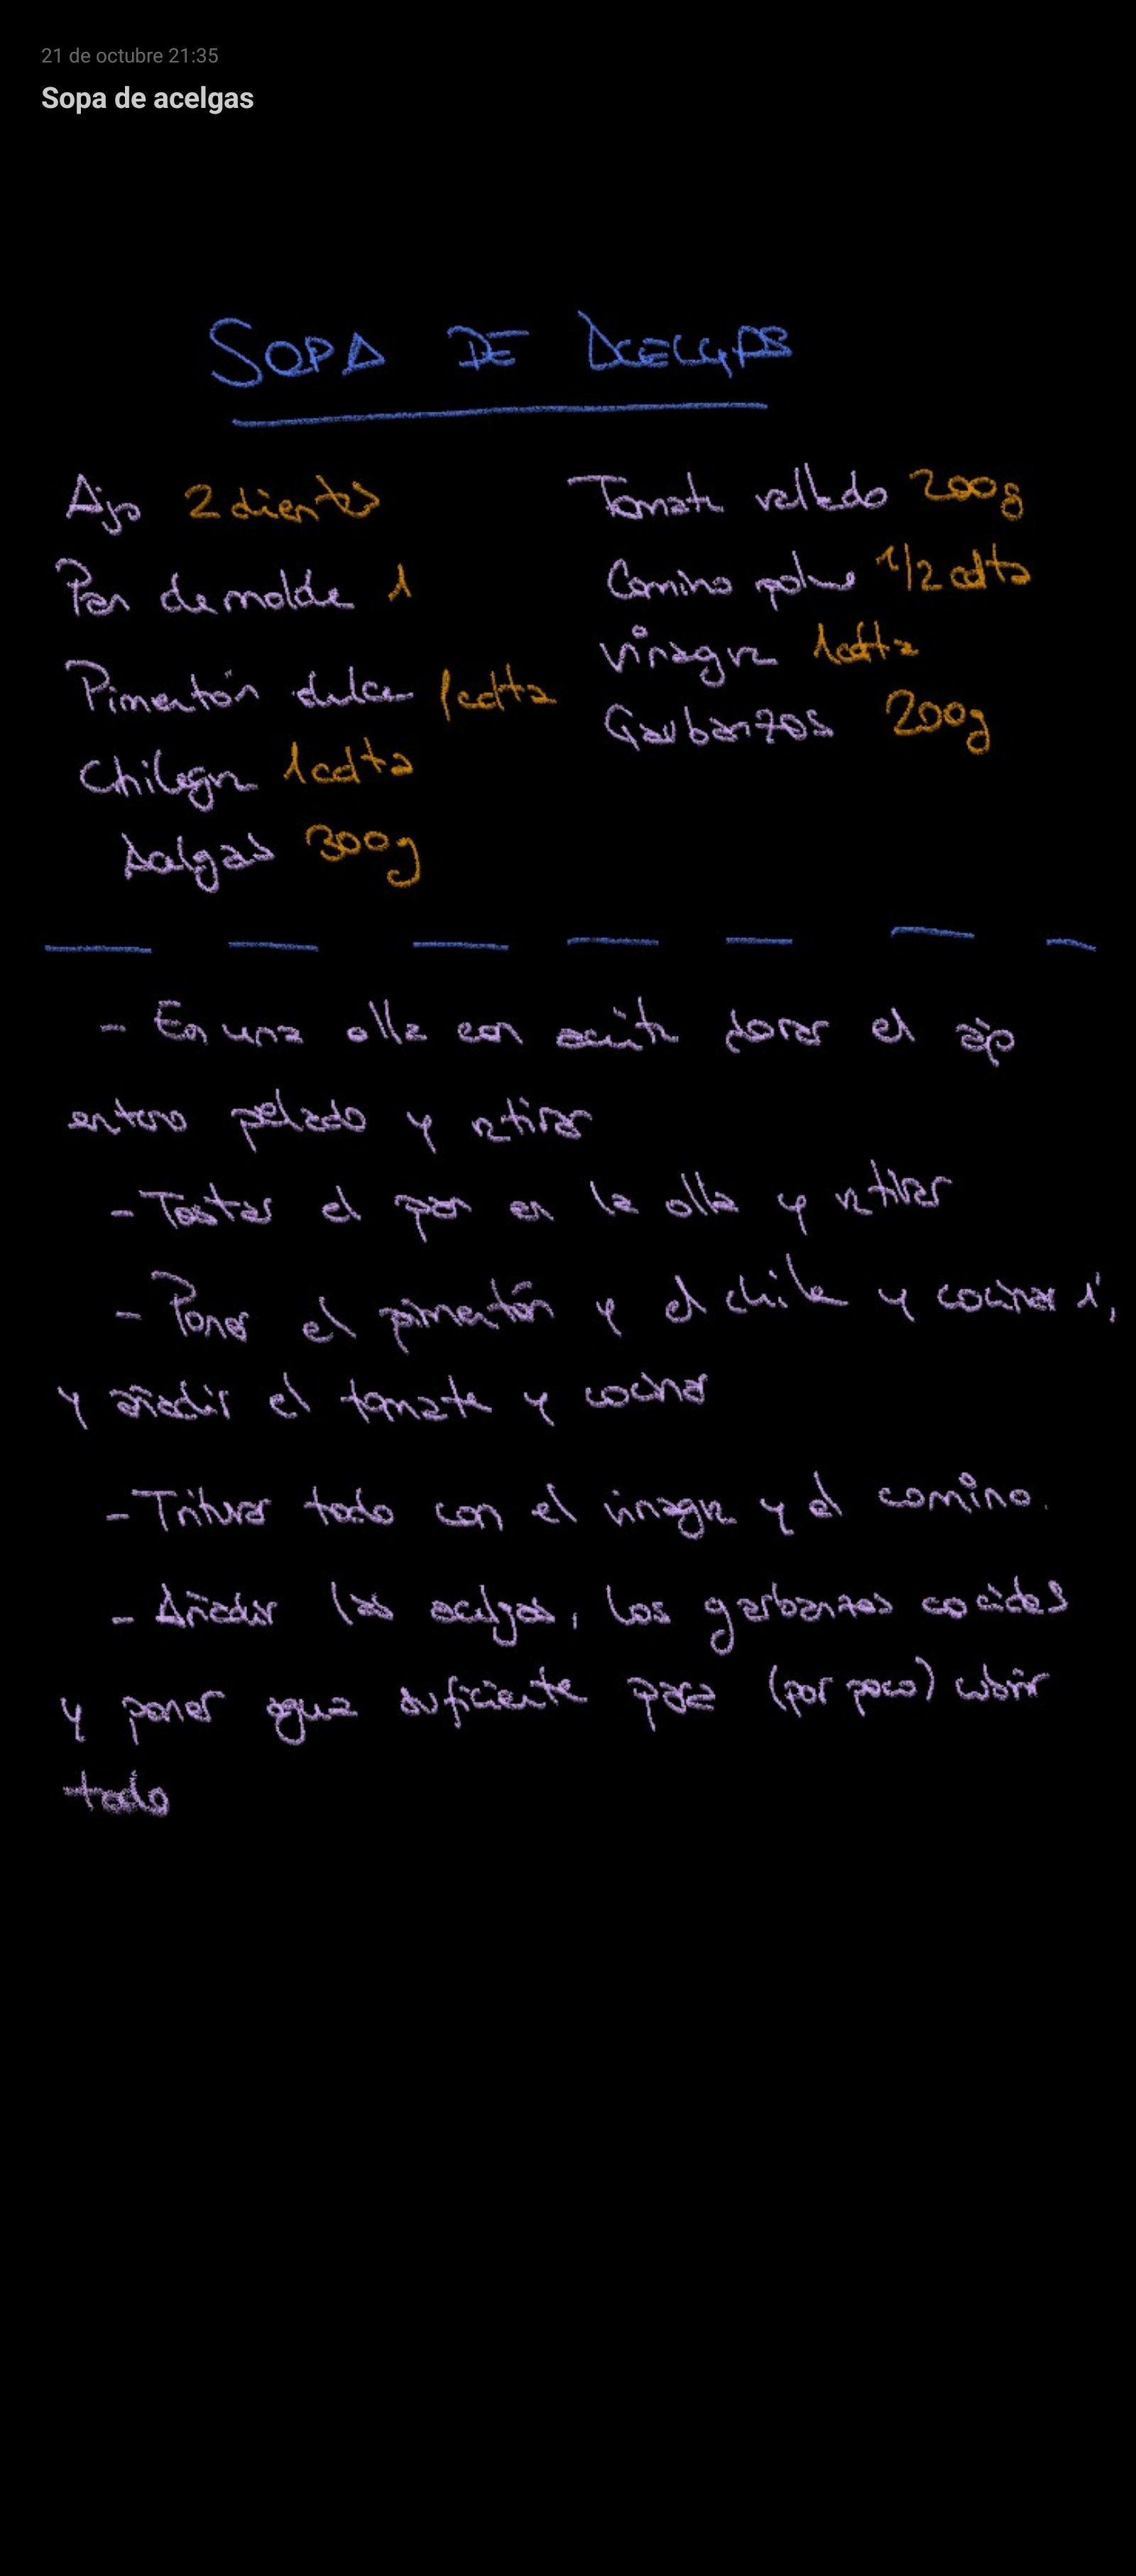 21 de octubre 21:35
Sopa de acelgas
SOPA DE ACELGAS
Ajo 2 dientes
Pan de molde 1
Pimentón dulce 1 cdta
Chile gr 1 cdta
Acelgas 300g
Tomate rallado 200g
Comino polvo 1/2 cdta
Vinagre 1 cdta
Garbanzos 200g
- En una olla con aceite dorar el ajo
entero pelado y retirar
- Tostar el pan en la olla y retirar
- Poner el pimentón y el chile y cocinar 1',
y añadir el tomate y cocinar
- Triturar todo con el vinagre y el comino.
- Añadir las acelgas, los garbanzos cocidos
y poner agua suficiente para (por poco) cubrir
todo